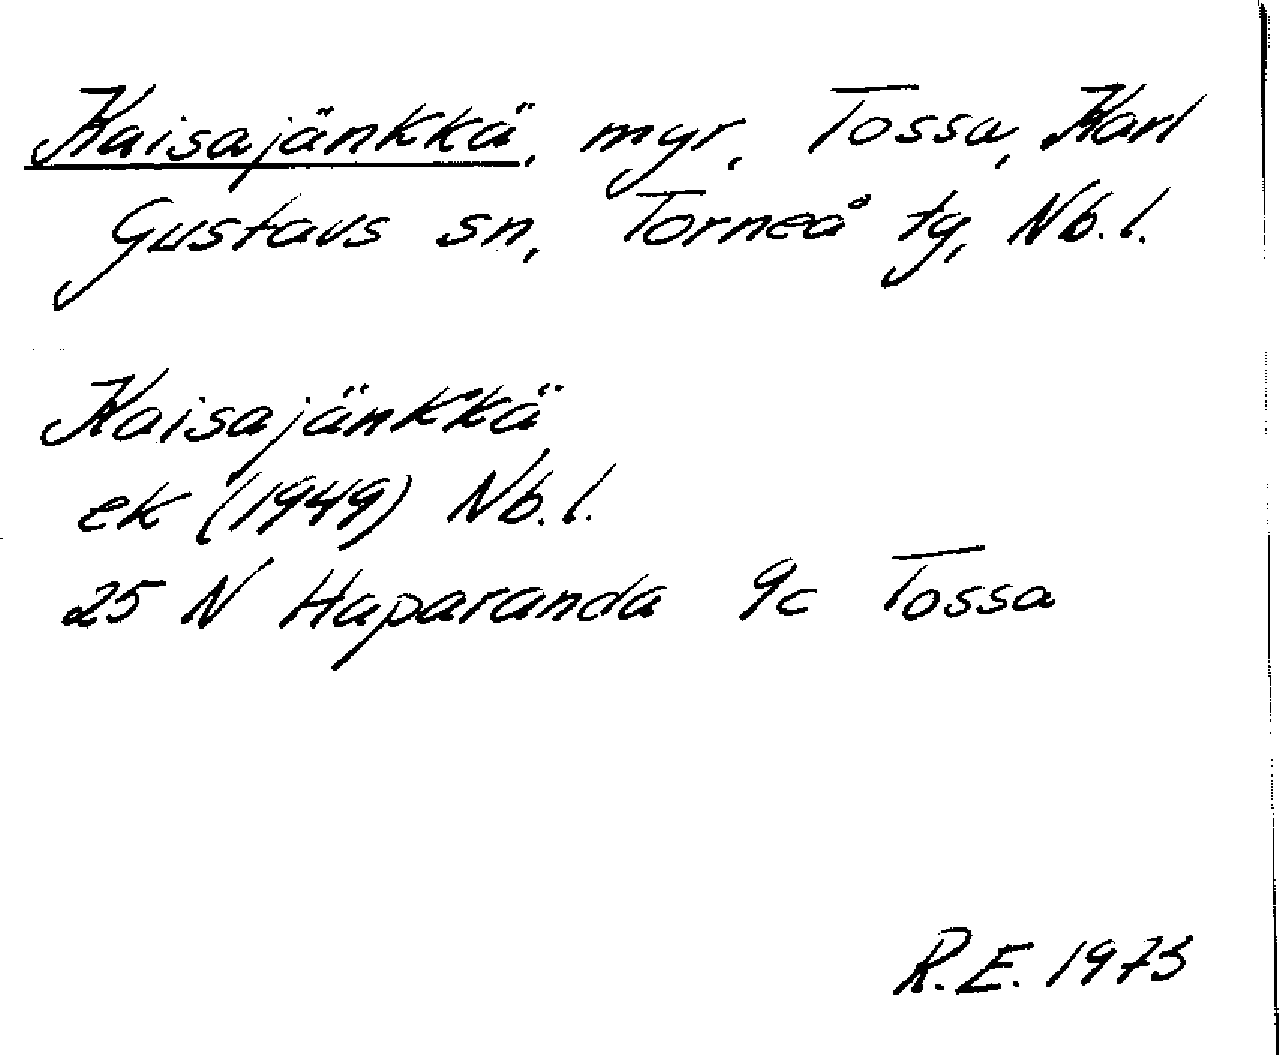 Kaisajänkkä, myr, Tossa, Karl
Gustavs sn, Torneå tg, Nb. l.
Kaisajänkkä
ek (1949) Nb. l.
25 N Haparanda 9c Tossa
R.E. 1973